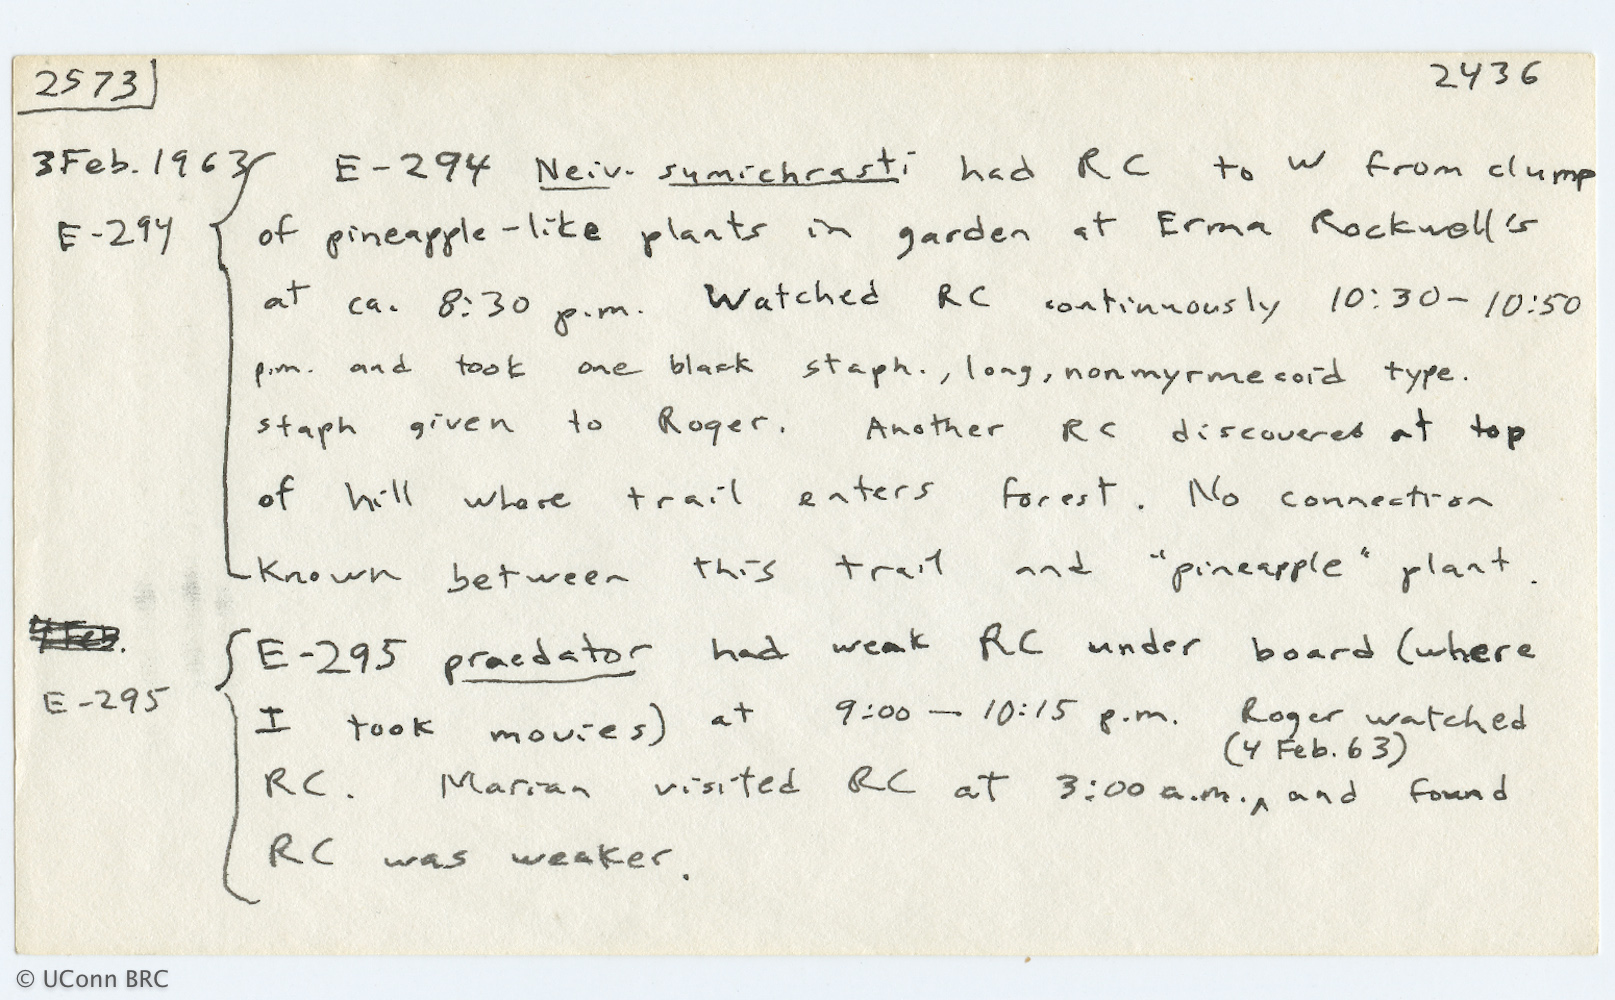 2573 2436
3 Feb. 1963 E-294 Neiv. sumichrasti had RC to W from clump
E-294 of pineapple-like plants in garden at Erma Rockwell's
at ca. 8:30 p.m. Watched RC continuously 10:30-10:50
p.m. and took one black staph., long, nonmyrmecoid type.
staph given to Roger. Another RC discovered at top
of hill where trail enters forest. No connection
known between this trail and "pineapple" plant.
4 Feb.
E-295 praedator had weak RC under board (where
E-295 I took movies) at 9:00 — 10:15 p.m. Roger watched
(4 Feb. 63)
RC. Marian visited RC at 3:00 a.m.,^ and found
RC was weaker.
© UConn BRC